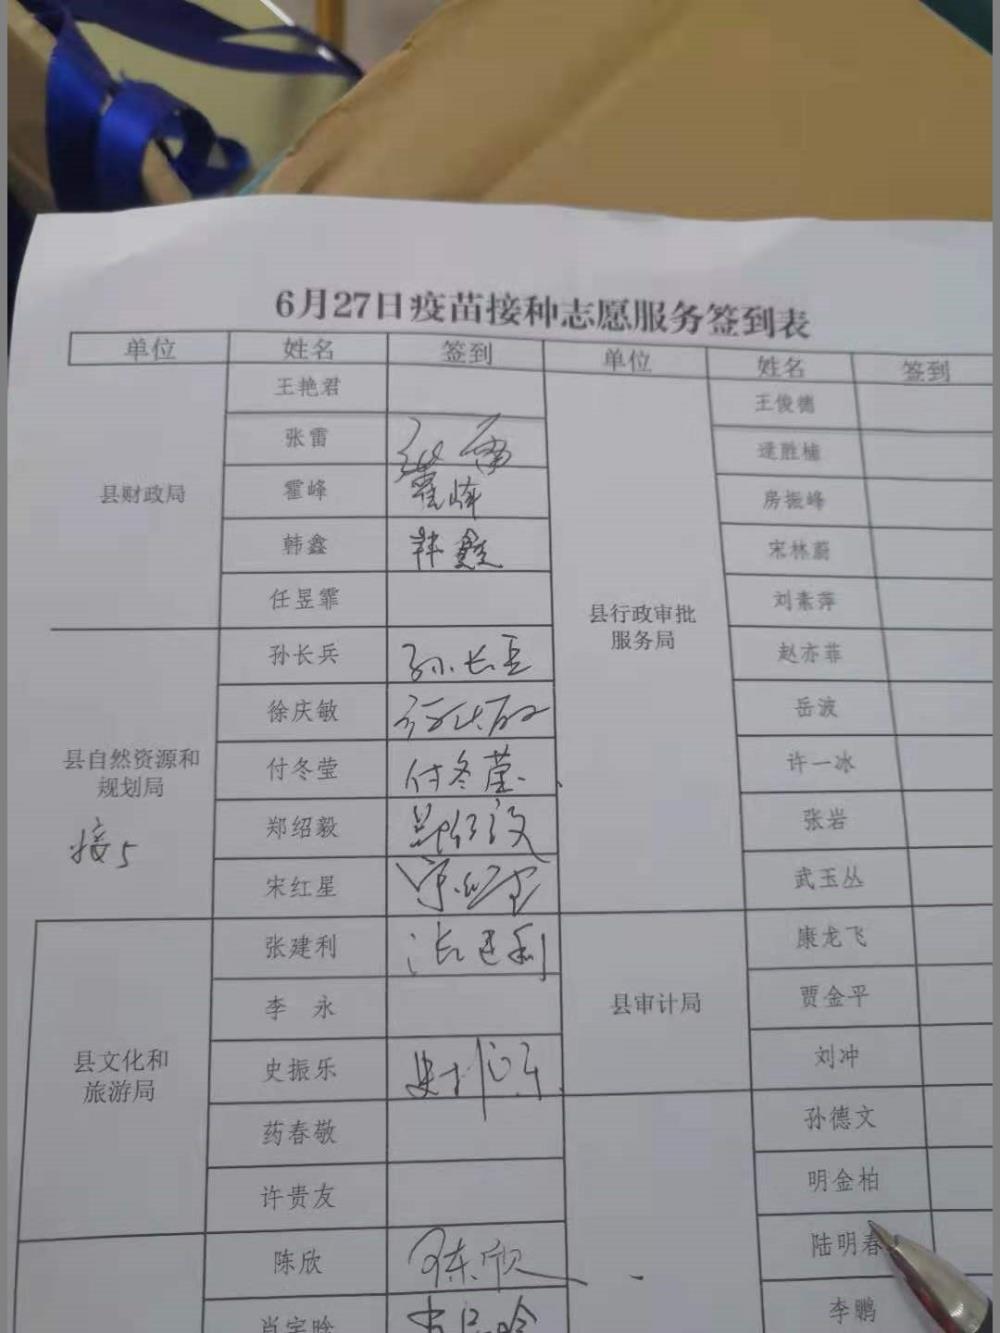 6月27日疫苗接种志愿服务签到表
单位 姓名 签到 单位 姓名 签到
县财政局
王艳君
张雷 张雷
霍峰 霍峰
韩鑫 韩鑫
任昱霏
县自然资源和
规划局
接5
孙长兵 孙长兵
徐庆敏 徐庆敏
付冬莹 付冬莹
郑绍毅 郑绍毅
宋红星 宋红星
县文化和
旅游局
张建利 张建利
李永
史振乐 史振乐
药春敬
许贵友
陈欣 陈欣
肖宇晗 肖宇晗
县行政审批
服务局
王俊德
逯胜楠
房振峰
宋林蔚
刘素萍
赵亦菲
岳波
许一冰
张岩
武玉丛
县审计局
康龙飞
贾金平
刘冲
孙德文
明金柏
陆明春
李鹏